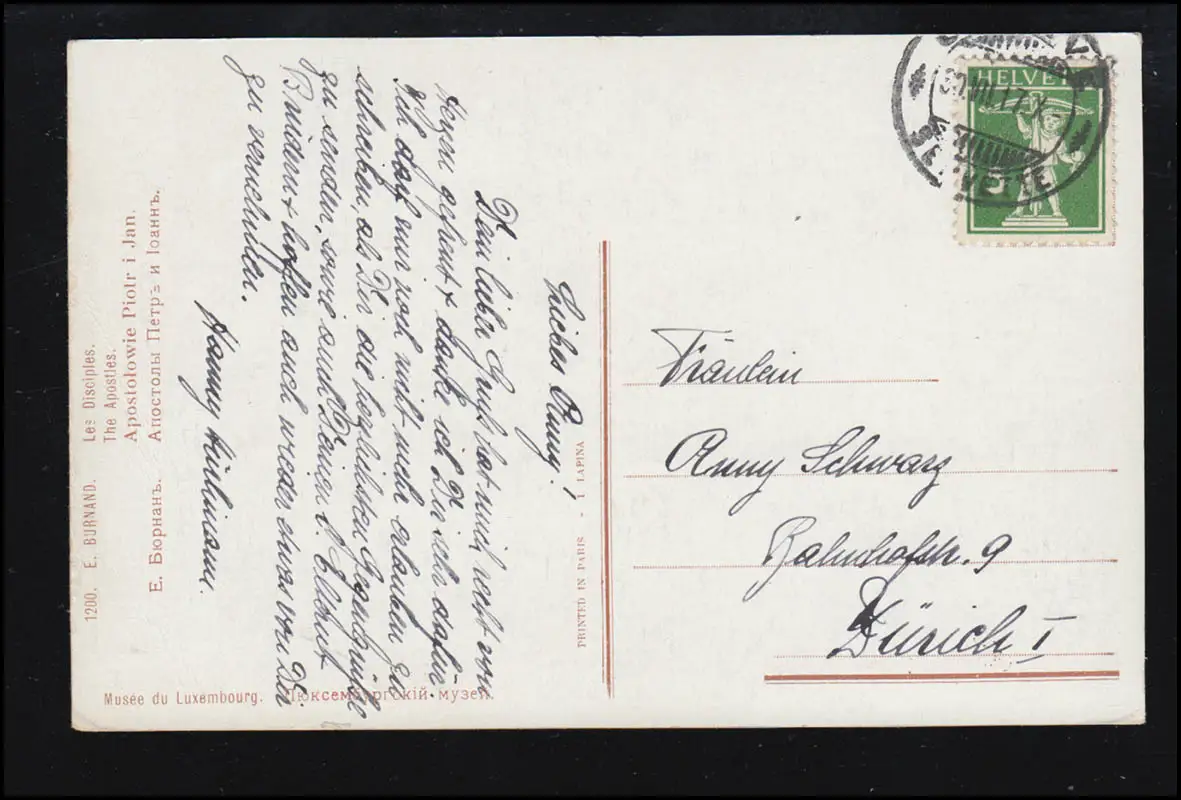 HELVETIA
1200. E. BURNAND. Les Disciples.
The Apostles.
Apostołowie Piotr i Jan.
Е. Бюрнанъ. Апостолы Петръ и Іоаннъ.
Musée du Luxembourg. Люксембургскій музей.
PRINTED IN PARIS - I. LAPINA
Liebes Anny!
Dein lieber Gruss hat mich recht von
Herzen gefreut & danke ich Dir sehr dafür.
Ich darf mir noch nicht mehr erlauben zu
schreiben, als Dir die herzlichsten
zu senden, sowie auch Deinen l. Eltern &
Brüdern & hoffen auch wieder etwas von Dir
zu vernehmen.
Hanny Hürlimann.
Fräulein
Anny Schwarz
Bahnhofstr. 9
Zürich I